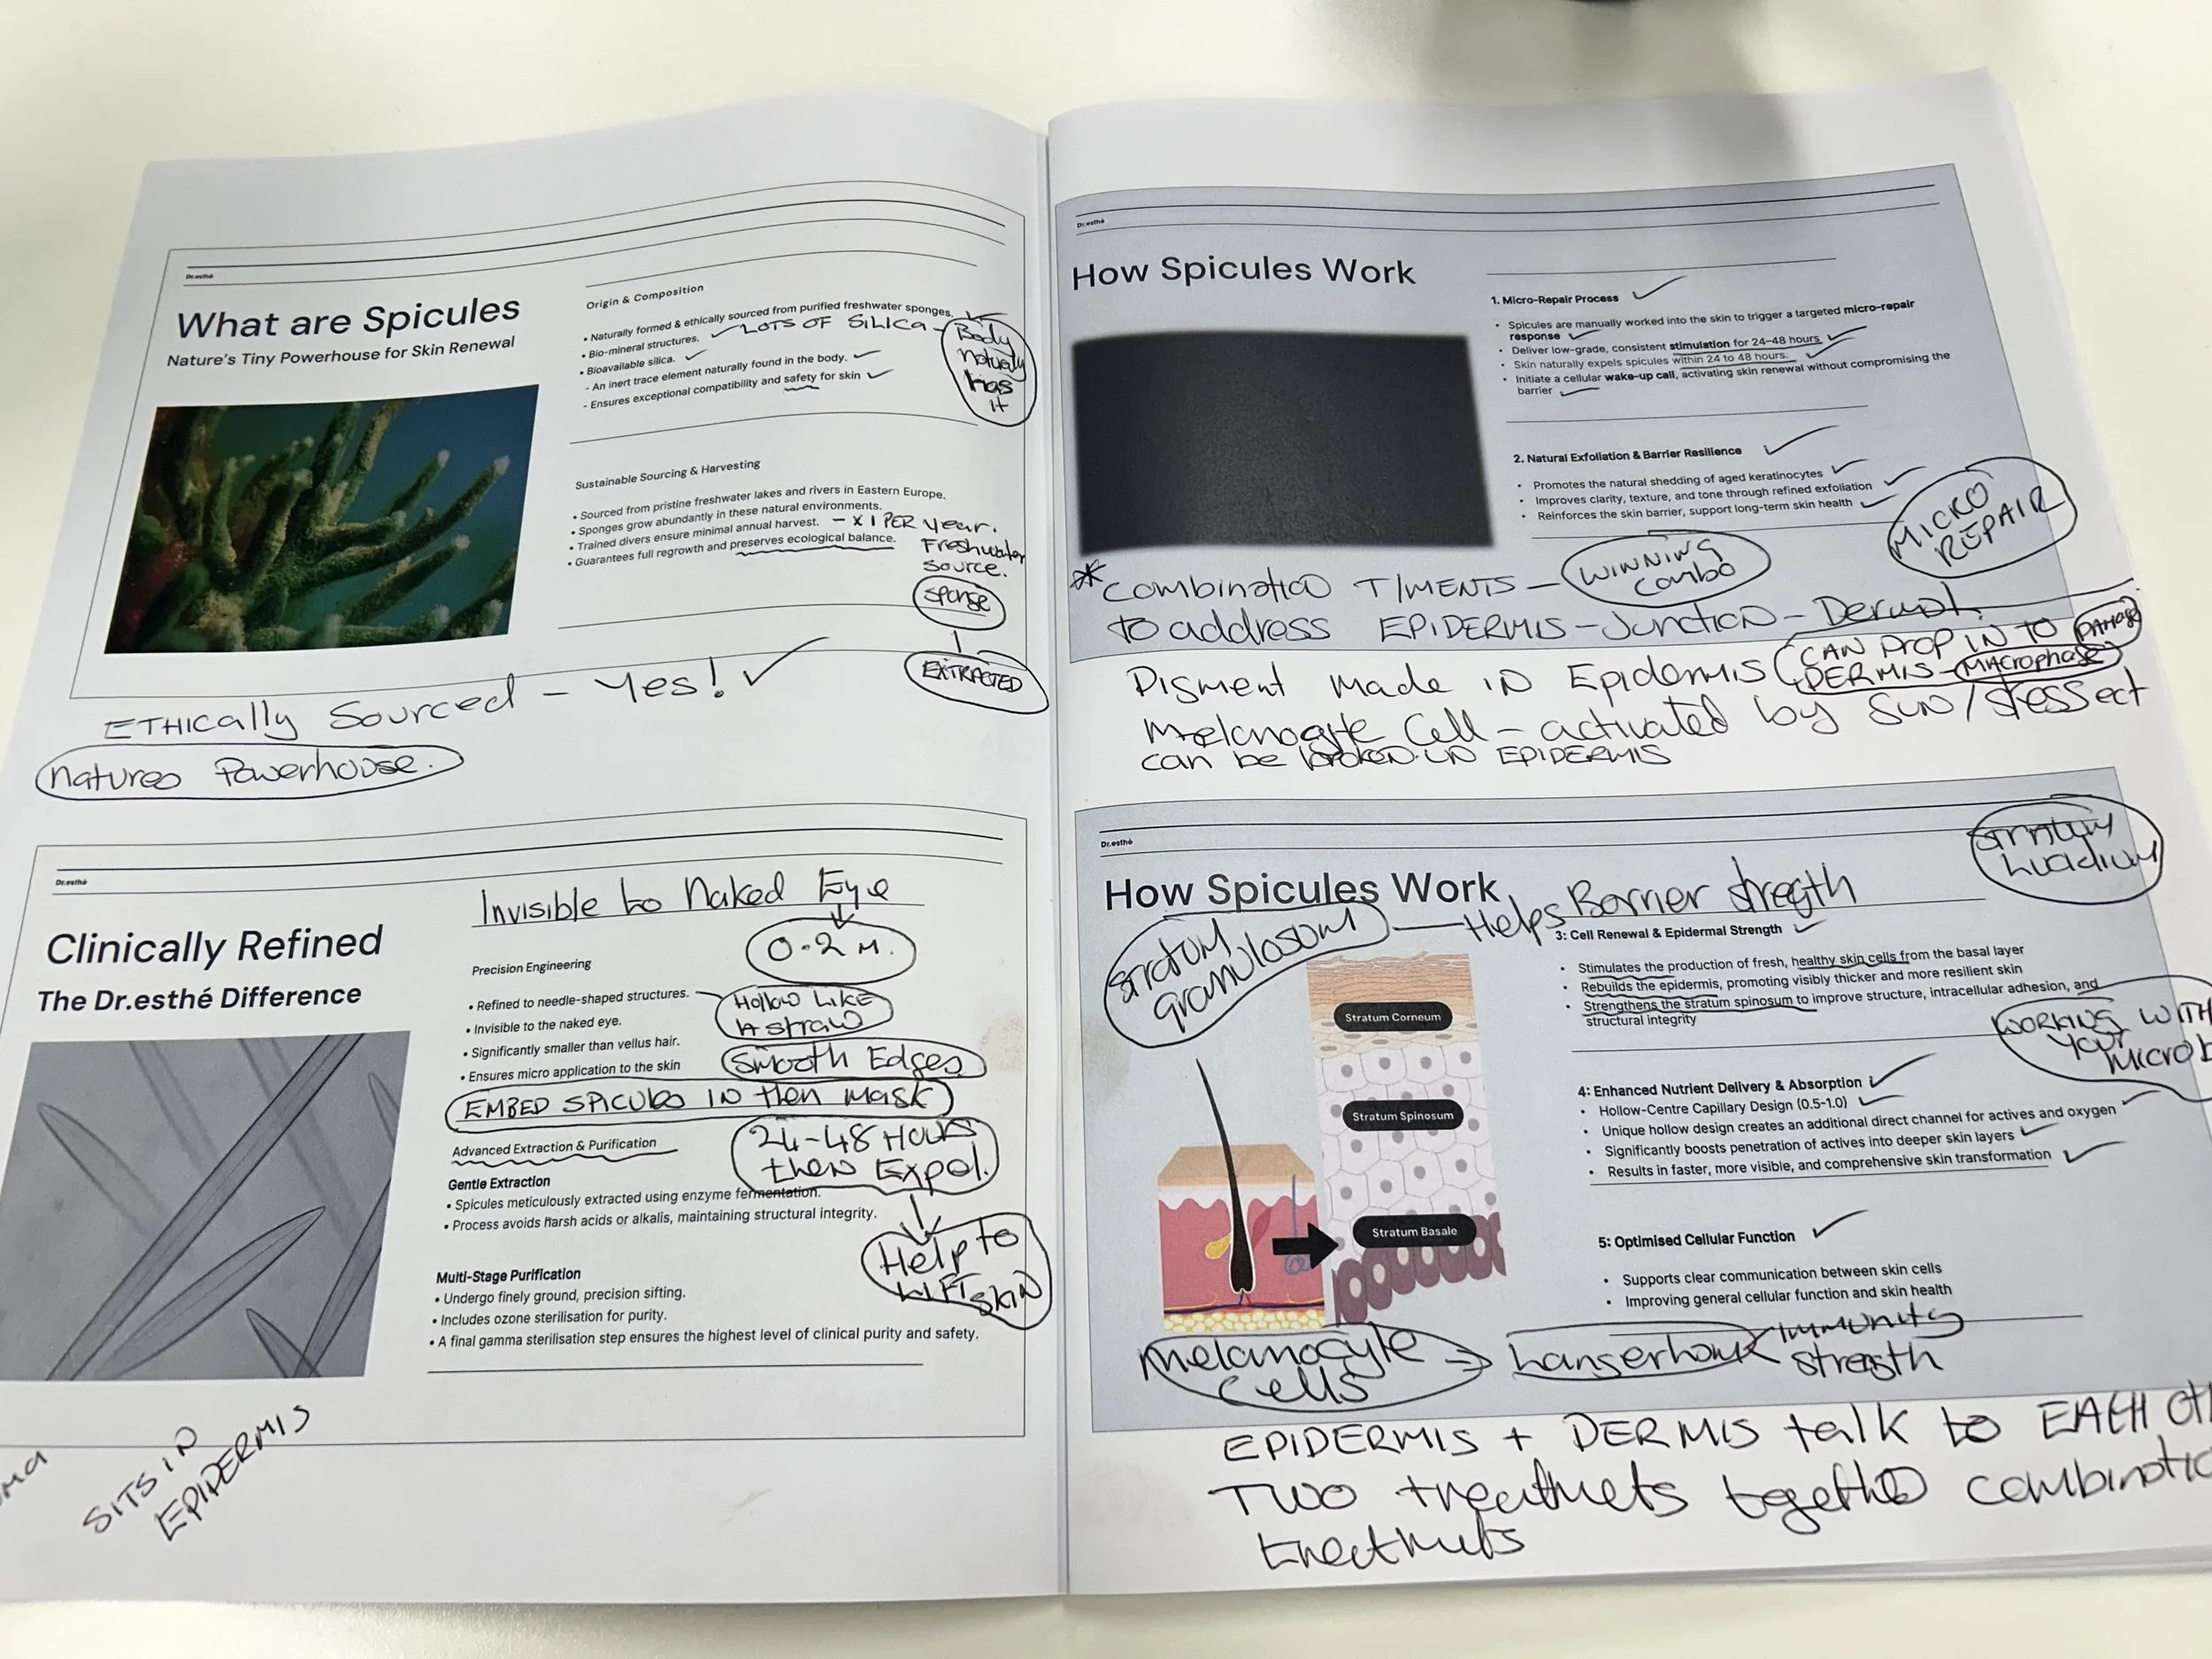 Dr.esthé
What are Spicules
Nature's Tiny Powerhouse for Skin Renewal
Origin & Composition
• Naturally formed & ethically sourced from purified freshwater sponges.
• Bio-mineral structures.
LOTS OF SILICA
• Bioavailable silica.
- An inert trace element naturally found in the body.
- Ensures exceptional compatibility and safety for skin
Body
naturally
has
it
Sustainable Sourcing & Harvesting
• Sourced from pristine freshwater lakes and rivers in Eastern Europe.
• Sponges grow abundantly in these natural environments.
• Trained divers ensure minimal annual harvest. - x 1 PER year.
• Guarantees full regrowth and preserves ecological balance.
Freshwater
source.
sponge
EXTRACTED
ETHICally Sourced - Yes!
natures Powerhouse.
Dr.esthé
Clinically Refined
The Dr.esthé Difference
Invisible to Naked Eye
0-2 M.
Precision Engineering
• Refined to needle-shaped structures.
• Invisible to the naked eye.
• Significantly smaller than vellus hair.
• Ensures micro application to the skin
Hollow LIKE
A straw
Smooth Edges
EMBED SPICULES IN then mask
24-48 Hours
then Expel.
Advanced Extraction & Purification
Gentle Extraction
• Spicules meticulously extracted using enzyme fermentation.
• Process avoids harsh acids or alkalis, maintaining structural integrity.
Help to
LIFT SKIN
Multi-Stage Purification
• Undergo finely ground, precision sifting.
• Includes ozone sterilisation for purity.
• A final gamma sterilisation step ensures the highest level of clinical purity and safety.
SITS IN
EPIDERMIS
Dr.esthé
How Spicules Work
1. Micro-Repair Process
• Spicules are manually worked into the skin to trigger a targeted micro-repair
response
• Deliver low-grade, consistent stimulation for 24-48 hours
• Skin naturally expels spicules within 24 to 48 hours.
• Initiate a cellular wake-up call, activating skin renewal without compromising the
barrier
2. Natural Exfoliation & Barrier Resilience
• Promotes the natural shedding of aged keratinocytes
• Improves clarity, texture, and tone through refined exfoliation
• Reinforces the skin barrier, support long-term skin health
MICRO
REPAIR
* Combinatio T/MENTS - WINNING
combo
to address EPIDERMIS - Junction - Dermal
Pigment made in Epidermis (CAN DROP IN TO DAMAGE
DERMIS - MACROPHASE
melanocyte Cell - activated by SUN/stress ect
can be broken in EPIDERMIS
Dr.esthé
How Spicules Work
STRATUM
LUCIDIUM
STRATUM
granulosom
Helps Barrier stregth
3: Cell Renewal & Epidermal Strength
• Stimulates the production of fresh, healthy skin cells from the basal layer
• Rebuilds the epidermis, promoting visibly thicker and more resilient skin
• Strengthens the stratum spinosum to improve structure, intracellular adhesion, and
structural integrity
WORKING WITH
your
Stratum Corneum
Stratum Spinosum
Stratum Basale
4: Enhanced Nutrient Delivery & Absorption
• Hollow-Centre Capillary Design (0.5-1.0)
• Unique hollow design creates an additional direct channel for actives and oxygen
• Significantly boosts penetration of actives into deeper skin layers
• Results in faster, more visible, and comprehensive skin transformation
5: Optimised Cellular Function
• Supports clear communication between skin cells
• Improving general cellular function and skin health
melanocyte
cells
immunity
strength
EPIDERMIS + DERMIS talk to EACH
TWO together